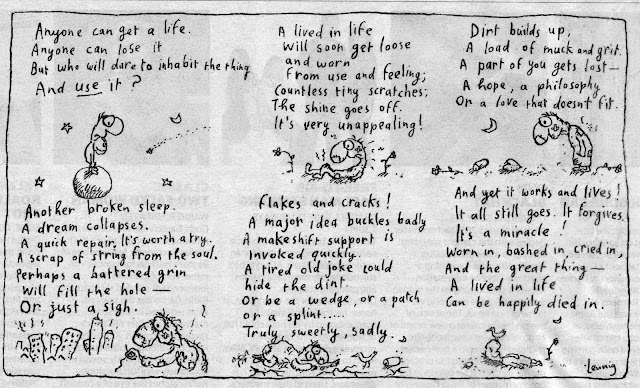 Anyone can get a life.
Anyone can lose it
But who will dare to inhabit the thing
And use it?
A lived in life
Will soon get loose
and worn
From use and feeling;
Countless tiny scratches;
The shine goes off.
It's very unappealing!
Dirt builds up,
A load of muck and grit.
A part of you gets lost—
A hope, a philosophy
Or a love that doesn't fit.
Another broken sleep.
A dream collapses.
A quick repair, It's worth a try.
A scrap of string from the soul.
Perhaps a battered grin
Will fill the hole —
Or just a sigh.
Flakes and cracks!
A major idea buckles badly
A makeshift support is
invoked quickly.
A tired old joke could
hide the dint.
Or be a wedge, or a patch
or a splint.....
Truly, sweetly, sadly.
And yet it works and lives!
It all still goes. It forgives.
It's a miracle!
Worn in, bashed in, cried in,
And the great thing—
A lived in life
Can be happily died in.
Leunig